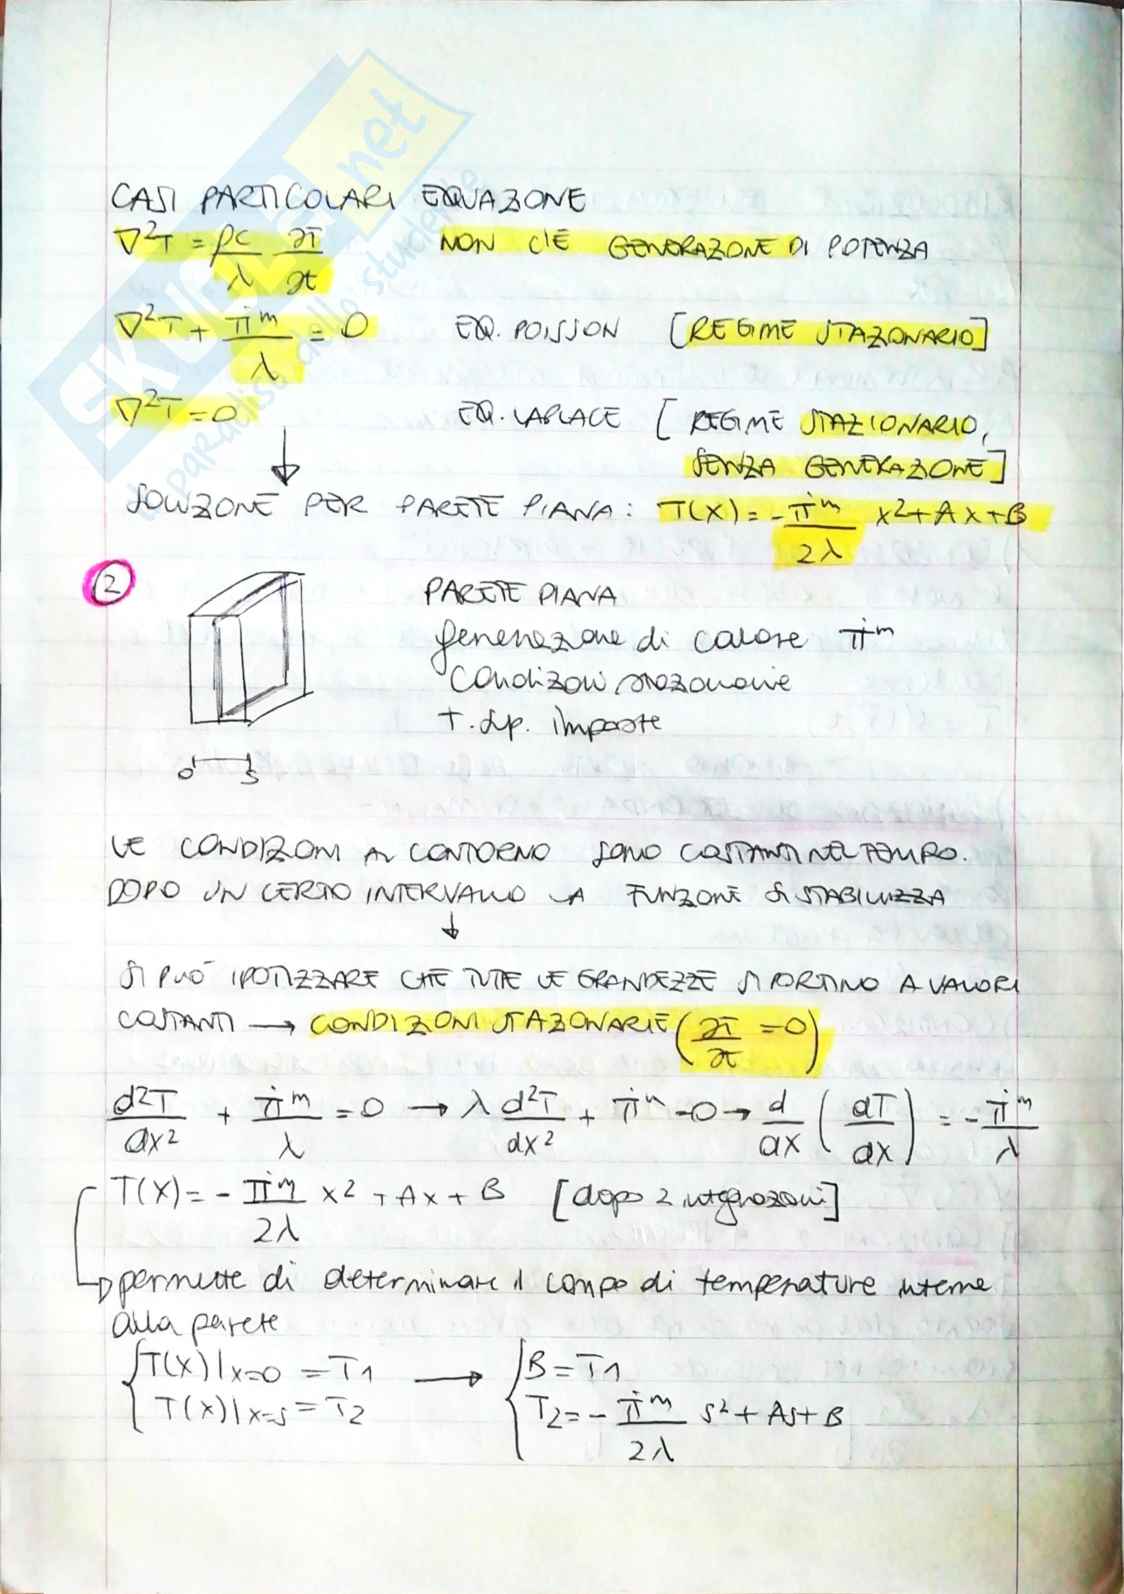 CASI PARTICOLARI EQUAZIONE
∇²T = ρc/λ ∂T/∂t NON C'È GENERAZIONE DI POTENZA
∇²T + π̇ᵐ/λ = 0 EQ. POISSON [REGIME STAZIONARIO]
∇²T = 0 EQ. LAPLACE [REGIME STAZIONARIO,
SENZA GENERAZIONE]
↓
SOLUZIONE PER PARETE PIANA: T(x) = - π̇ᵐ/2λ x² + Ax + B
2 PARETE PIANA
generazione di calore π̇ᵐ
condizioni stazionarie
T. sup. imposte
0 s
LE CONDIZIONI AL CONTORNO SONO COSTANTI NEL TEMPO.
DOPO UN CERTO INTERVALLO LA FUNZIONE SI STABILIZZA
↓
SI PUÒ IPOTIZZARE CHE TUTTE LE GRANDEZZE SI PORTINO A VALORI
COSTANTI → CONDIZIONI STAZIONARIE (∂T/∂t = 0)
d²T/dx² + π̇ᵐ/λ = 0 → λ d²T/dx² + π̇ᵐ = 0 → d/dx (dT/dx) = - π̇ᵐ/λ
T(x) = - π̇ᵐ/2λ x² + Ax + B [dopo 2 integrazioni]
→ permette di determinare il campo di temperature interne
alla parete
{T(x)|x=0 = T1 → {B = T1
T(x)|x=s = T2 T2 = - π̇ᵐ/2λ s² + As + B
SKUOLA.net
il paradiso dello studente